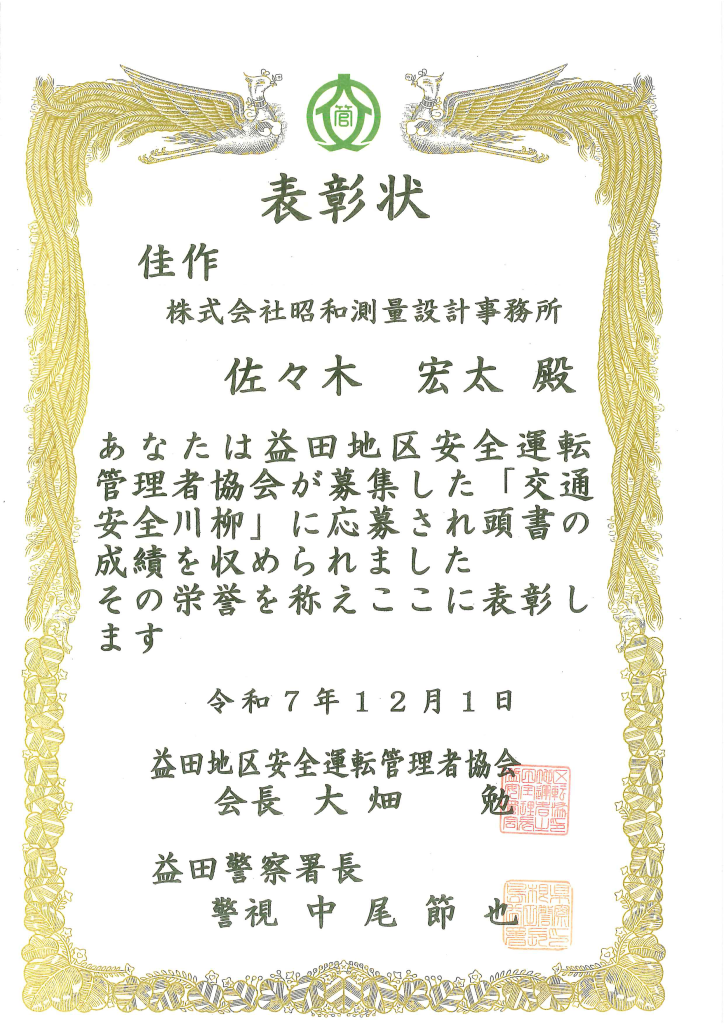 管
表彰状
佳作
株式会社昭和測量設計事務所
佐々木 宏太 殿
あなたは益田地区安全運転
管理者協会が募集した「交通
安全川柳」に応募され頭書の
成績を収められました
その栄誉を称えここに表彰し
ます
令和7年12月1日
益田地区安全運転管理者協会
会長 大畑 勉
益田警察署長
警視 中尾節也